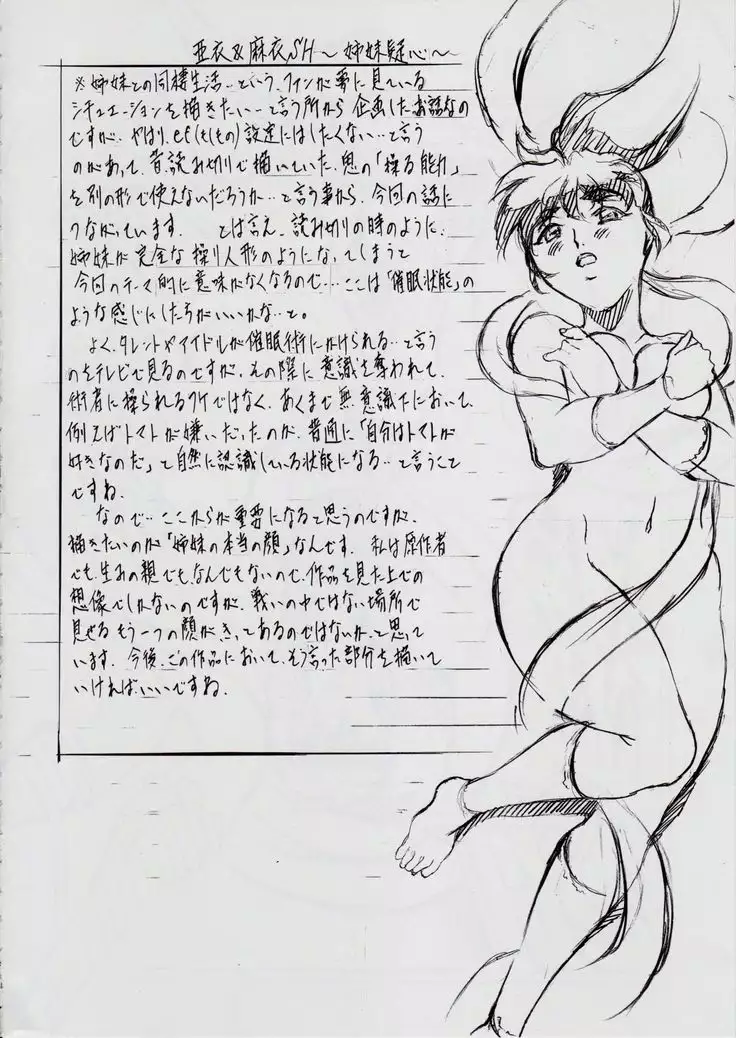 亜衣&麻衣SH〜姉妹疑心〜
※姉妹との同棲生活…という、ファンが夢に見ている
シチュエーションを描きたい…と言う所から企画したお話なの
ですが、やはり、if(もしもの)設定にはしたくない…と言う
のがあって、昔読み切りで描いていた、鬼の「操る能力」
を別の形で使えないだろうか…と言う事から、今回の話に
つながっています。 とは言え、読み切りの時のように、
姉妹が完全な操り人形のようになってしまうと
今回のテーマ的に意味がなくなるので…ここは「催眠状態」の
ような感じにした方がいいかな…と。
よく、タレントやアイドルが催眠術にかけられる…と言う
のをテレビで見るのですが、その際に意識を奪われて、
術者に操られるワケではなく、あくまで無意識下において、
例えばトマトが嫌いだったのが、普通に「自分はトマトが
好きなのだ」と自然に認識している状態になる…と言うこと
ですね。
なので…ここからが重要になると思うのですが、
描きたいのが「姉妹の本当の顔」なんです。私は原作者
でも、生みの親でもなんでもないので、作品を見た上での
想像でしかないのですが、戦いの中ではない場所で
見せるもう一つの顔がきっとあるのではないか、と思って
います。今後、この作品において、そう言った部分を描いて
いければいいですね。